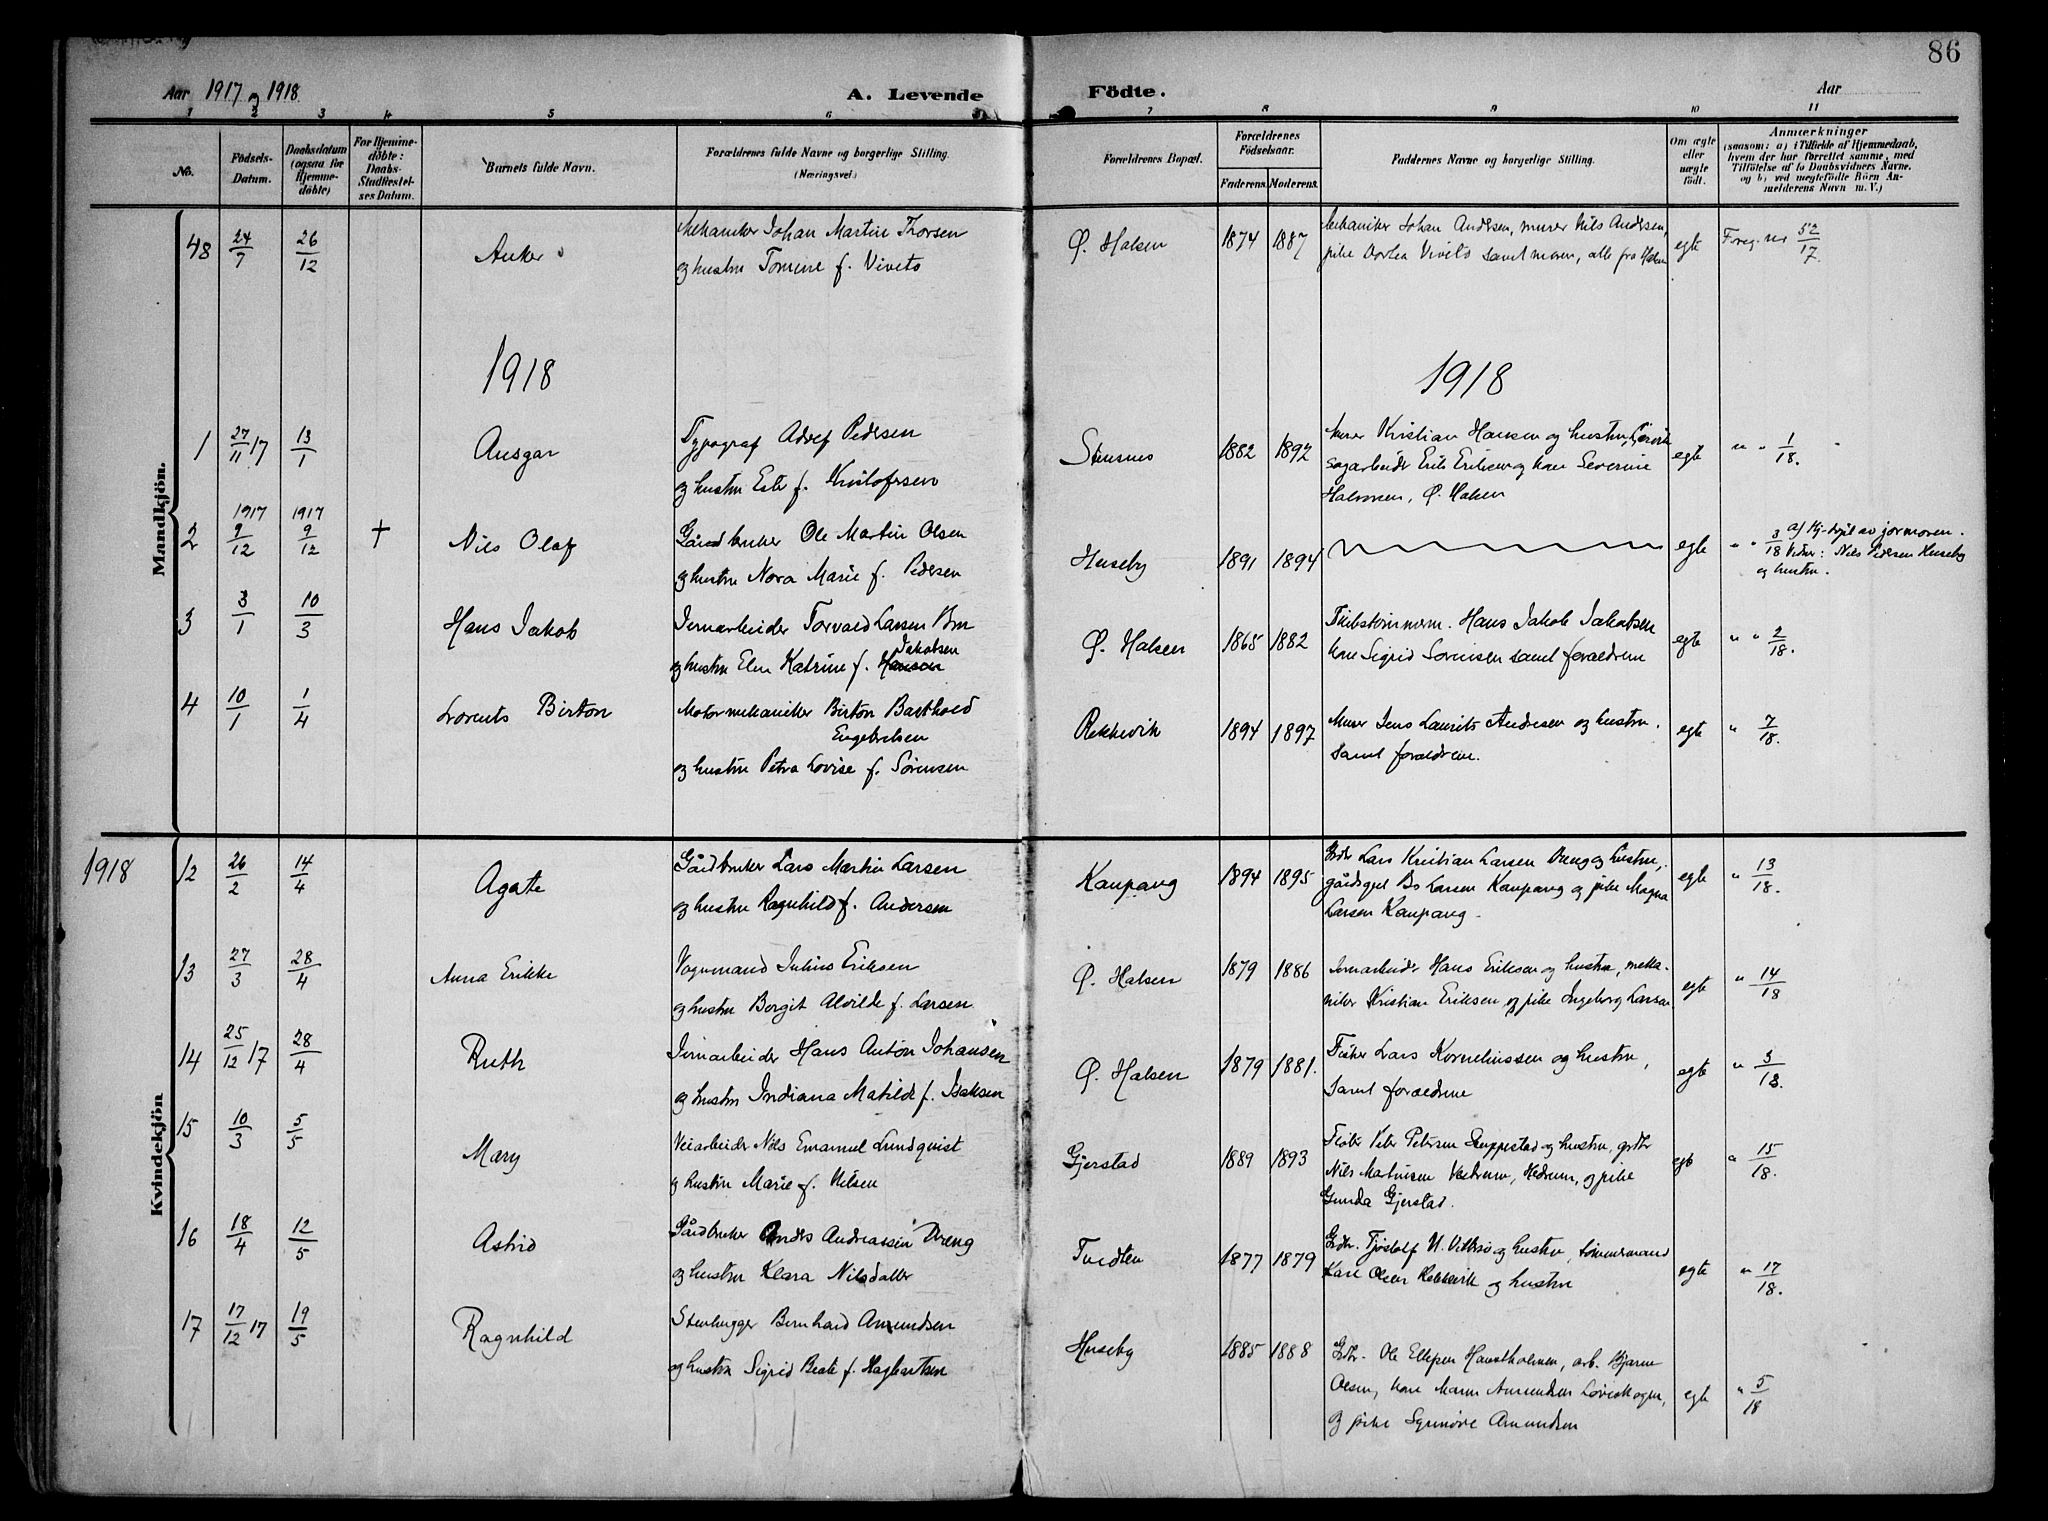 86
Aar 1917 og 1918.
A. Levende Födte.
Aar
1 2 3 4 5 6 7 8 9 10 11
No.
Födsels-Datum.
Daabsdatum (ogsaa for Hjemmedöbte)
For Hjemmedöbte: Daabs-Stadfæstelses Datum.
Barnets fulde Navn.
Forældrenes fulde Navne og borgerlige Stilling.
(Næringsvei.)
Forældrenes Bopæl.
Forældrenes Födselsaar.
Faderens. Moderens.
Faddernes Navne og borgerlige Stilling.
Om ægte eller uægte födt.
Anmærkninger
(saasom: a) i Tilfælde af Hjemmedaab, hvem der har forrettet samme, med Tilföielse af to Daabsvidners Navne, og b) ved uægtefödte Börn Anmelderens Navn m. V.)
Mandkjön.
48 24/7 26/12 Anker
Mekaniker Johan Martin Thorsen
og hustru Tomine f. Vivets
Ø. Halsen 1874 1887
Mekaniker Johan Andersen, murer Nils Andersen,
pike Dorthea Vivets samt moren, alle fra Halsen
egte Foreg. nr 52/17.
1918
1918
1 27/11 17 13/1 Ansgar
Typograf Adolf Pedersen
og hustru Ester f. Kristofersen
Stensnes 1882 1892
Murer Kristian Hansen og hustru, Larvik
sagarbeider Erik Eriksen og kone Severine
Halvorsen, Ø. Halsen
egte " " 1/18.
2 1917 9/12 1917 9/12 † Nils Olaf
Gårdbruker Ole Martin Olsen
og hustru Nora Marie f. Pedersen
Huseby 1891 1894
egte " " 3/18 a/ Hj-døpt av jormoren.
Vidner: Nils Pedersen Huseby
og hustru.
3 3/1 10/3 Hans Jakob
Jernarbeider Torvald Larsen Bru
og hustru Elen Katrine f. Hansen Jakobsen
Ø. Halsen 1865 1882
Hans Jakob Jakobsen
kone Sigrid Sørensen samt forældrene
egte " " 2/18.
4 10/1 1/4 Lorents Birton
Motormekaniker Birton Barthold
Engebretsen
og hustru Petra Lovise f. Sørensen
Rekkevik 1894 1897
Murer Jens Laurits Andresen og hustru.
samt forældrene.
egte " 7/18.
Kvindekjön
1918
12 26/2 14/4 Agate
Gårdbruker Lars Martin Larsen
og hustru Ragnhild f. Andersen
Kaupang 1894 1895
Grdbr Lars Kristian Larsen Vreng og hustru,
gårdsgut Bs Larsen Kaupang og pike Magna
Larsen Kaupang.
egte " 13/18.
13 27/3 28/4 Anna Erikke
Vognmand Julius Eriksen
og hustru Borgit Alvilde f. Larsen
Ø. Halsen 1879 1886
Jernarbeider Hans Eriksen og hustru, meka-
niker Kristian Eriksen, og pike Ingeborg Larsen
egte " 14/18
14 25/12 17 28/4 Ruth
Jernarbeider Hans Anton Johansen
og hustru Indiana Matilde f. Isaksen
Ø. Halsen 1879 1881.
Fisker Lars Korneliussen og hustru,
samt forældrene
egte " 3/18.
15 10/3 5/5 Mary
Veiarbeider Nils Emanuel Lundquist
og hustru Marie f. Nilsen
Gjerstad 1889 1893
Fløter Peter Petersen Seppestad og hustru, grdbr
Nils Martinsen Vestrum, Hedrum, og pike
Gunda Gjerstad.
egte " 15/18.
16 18/4 12/5 Astrid
Gårdbruker Anders Andreassen Vreng
og hustru Klara Nilsdatter
Tvedten 1877 1879
Grdbr. Tjøstolf N. Vittersø og hustru, tømmermand
Karl Olsen Rekkevik og hustru
egte " 17/18.
17 17/12 17 19/5 Ragnhild
Stenhugger Bernhard Amundsen
og hustru Sigrid Beate f. Hagbartsen
Huseby 1885 1888
Grdbr. Ole Ellefsen Havstholmen, arb. Bjarne
Olsen, kone Maren Amundsen Løveskogen,
og pike Synnøve Amundsen
egte " 5/18